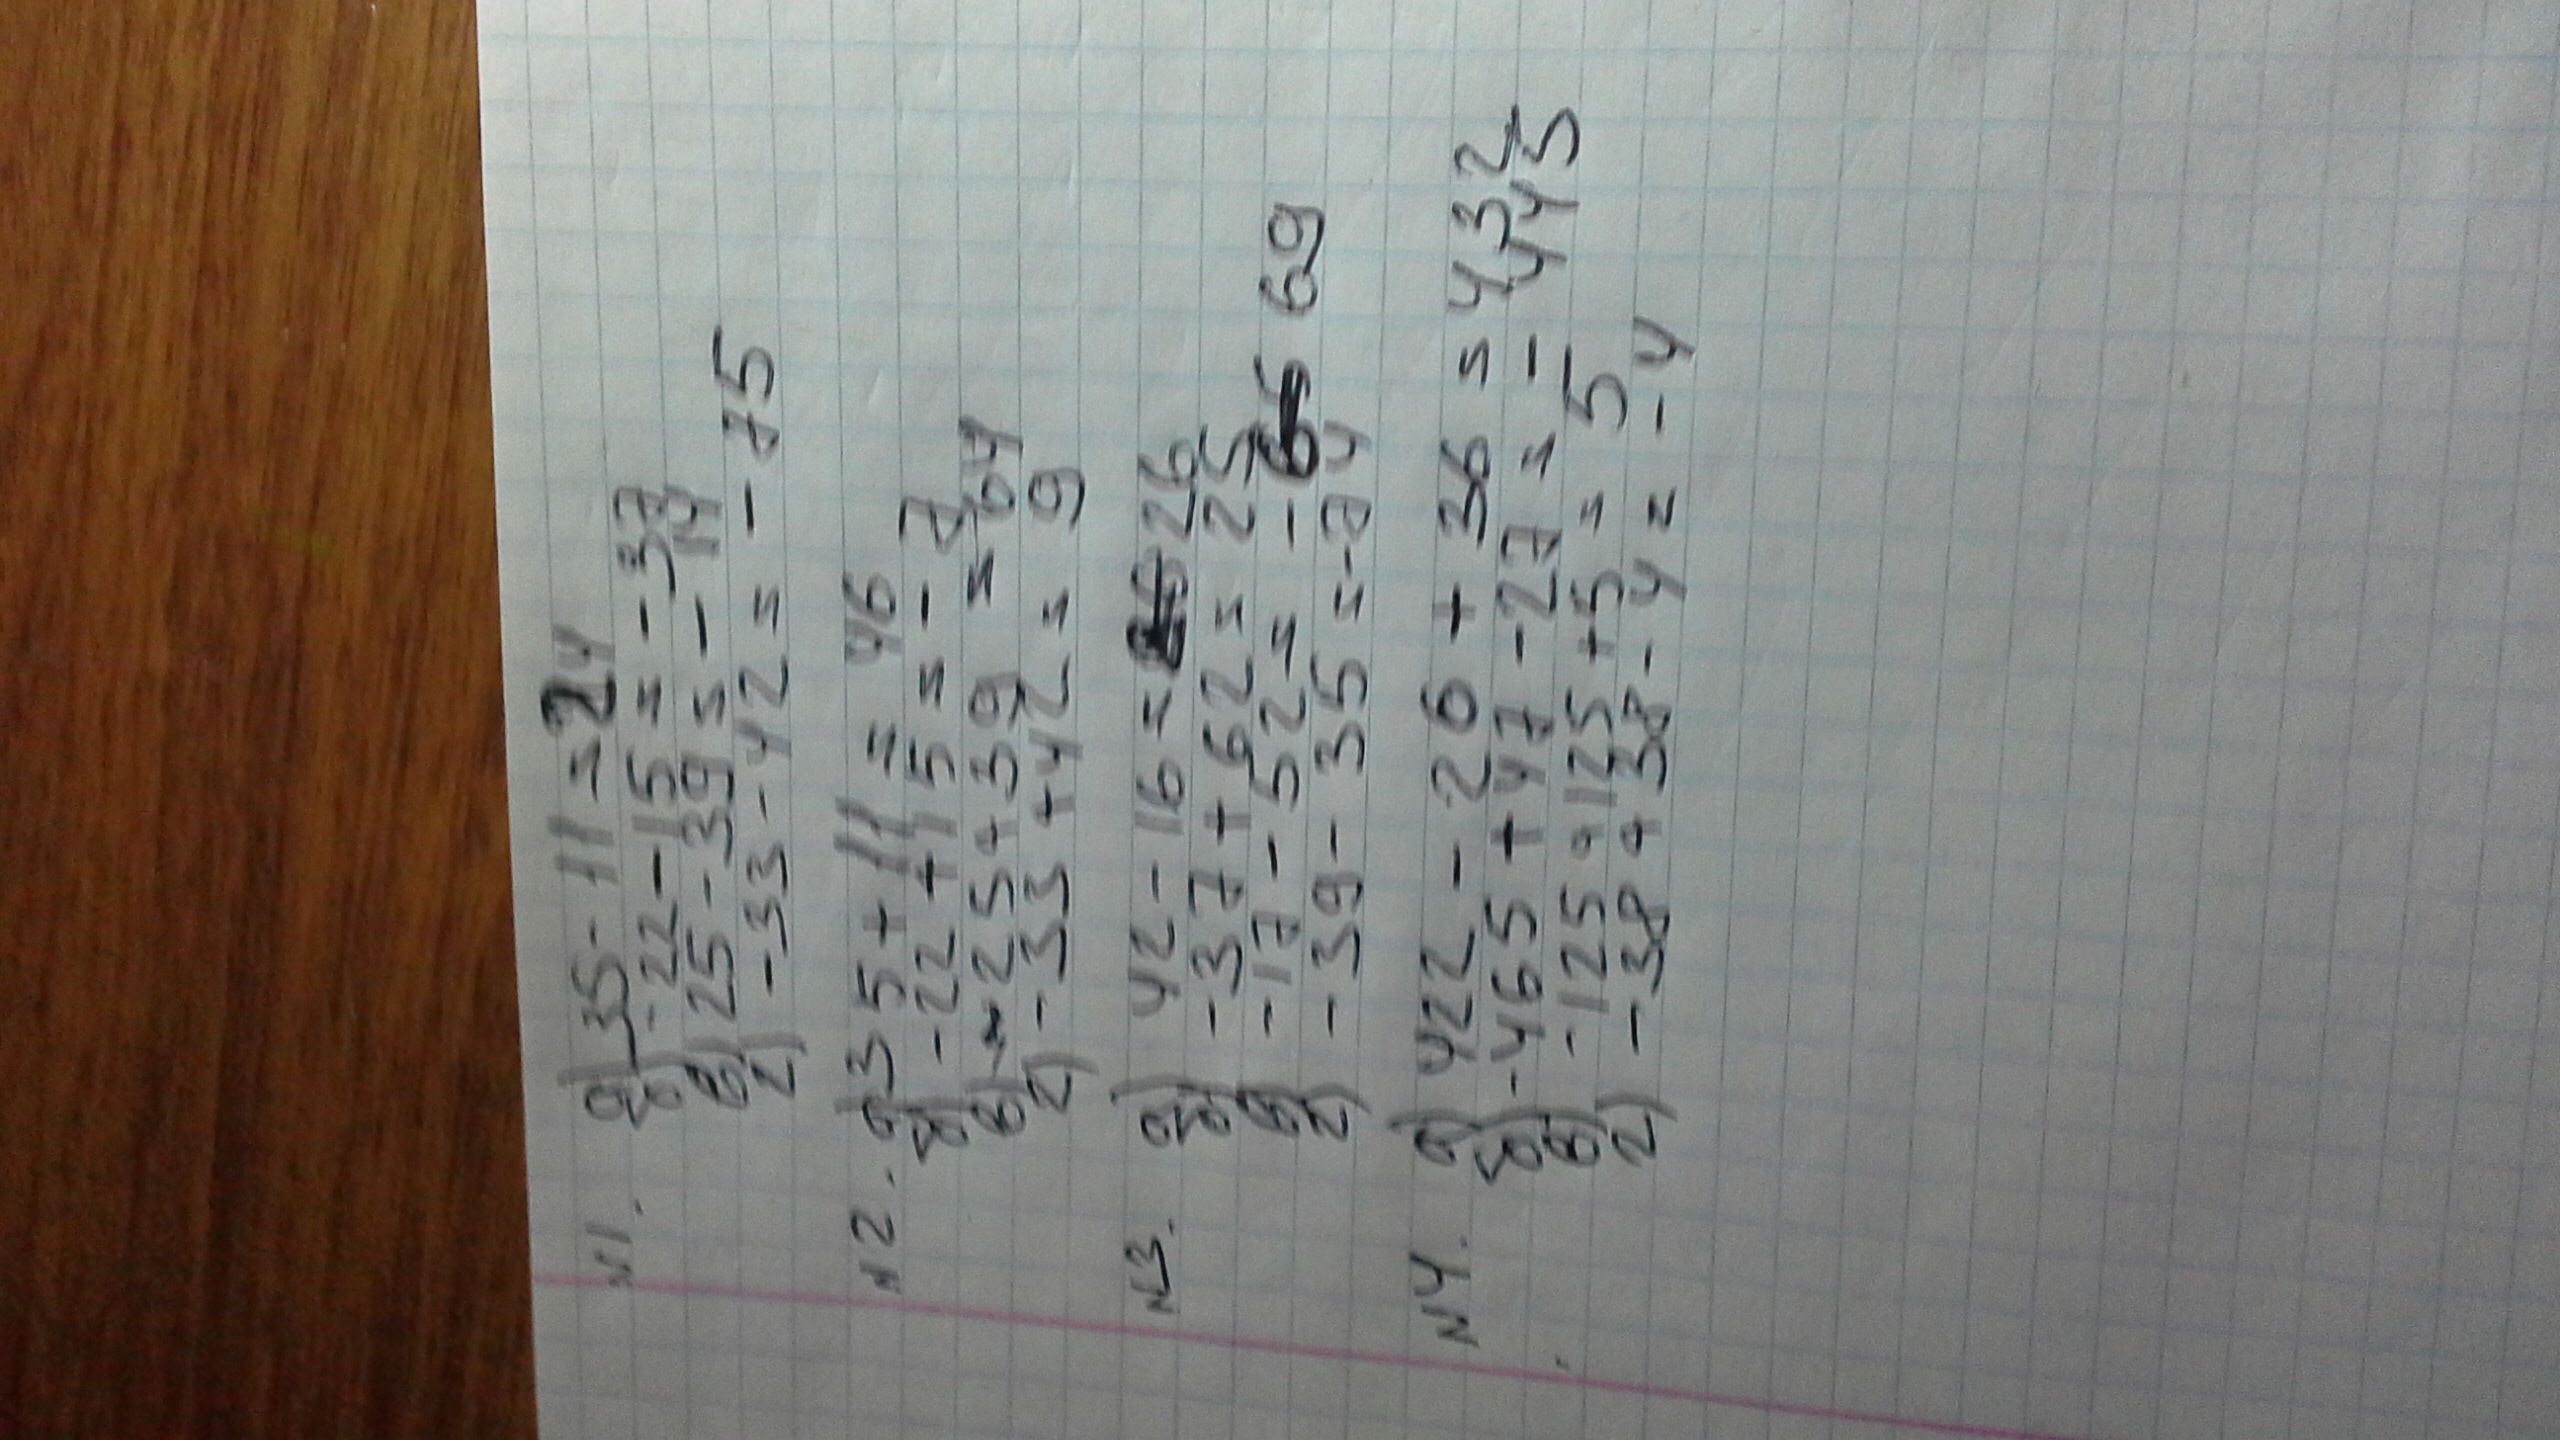 N1. а) 35-11=24
б) -22-15=-37
в) 25-39=-14
г) -33-42=-75
N2. а) 35+11=46
б) -22+15=-7
в) 25+39=64
г) -33+42=9
N3. а) 42-16=26
б) -37+62=25
в) -17-52=-69
г) -39-35=-74
N4. а) 422-26+36=432
б) -465+47-27=-445
в) -125+125+5=5
г) -38+38-4=-4